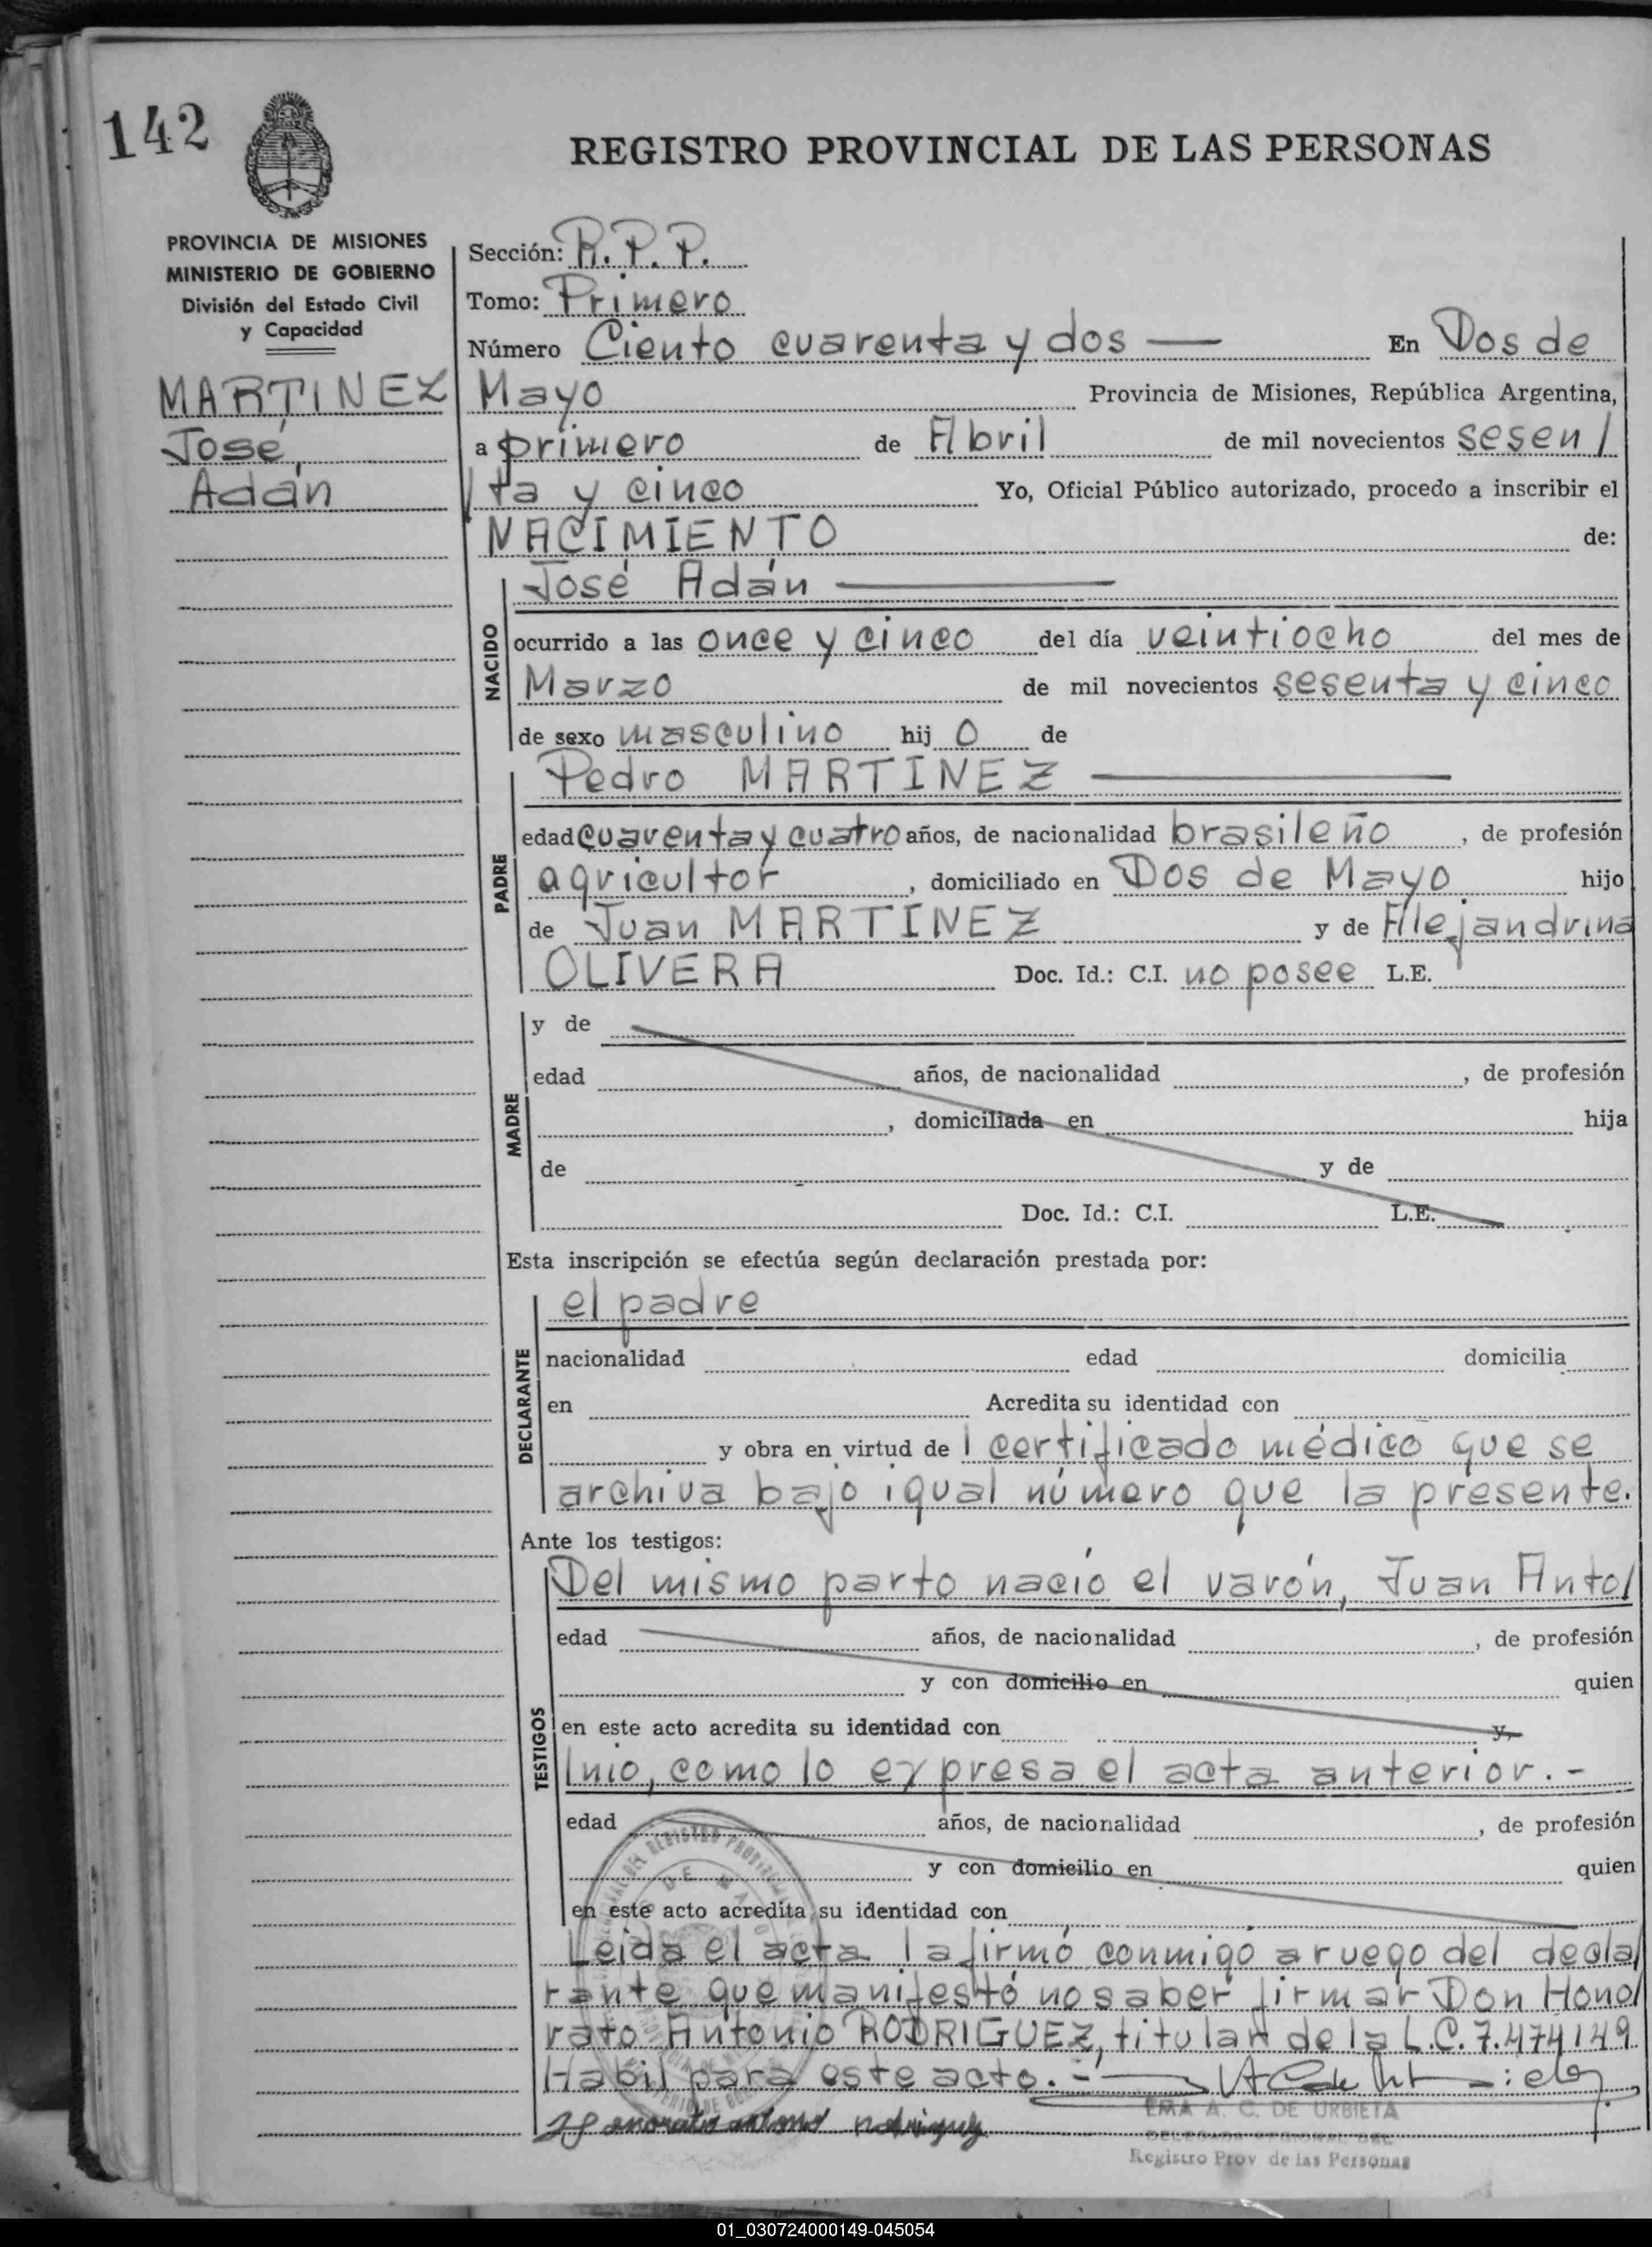 142
REGISTRO PROVINCIAL DE LAS PERSONAS
PROVINCIA DE MISIONES
MINISTERIO DE GOBIERNO
División del Estado Civil
y Capacidad
MARTINEZ
José
Adán
Sección: R.P.P.
Tomo: Primero
Número Ciento cuarenta y dos — En Dos de
Mayo Provincia de Misiones, República Argentina,
a primero de Abril de mil novecientos sesen/
/ta y cinco Yo, Oficial Público autorizado, procedo a inscribir el
NACIMIENTO de:
NACIDO
José Adán —
ocurrido a las once y cinco del día veintiocho del mes de
Marzo de mil novecientos sesenta y cinco
de sexo masculino hij o de
PADRE
Pedro MARTINEZ —
edad cuarenta y cuatro años, de nacionalidad brasileño, de profesión
agricultor, domiciliado en Dos de Mayo hijo
de Juan MARTINEZ y de Alejandrina
OLIVERA Doc. Id.: C.I. no posee L.E.
MADRE
y de
edad años, de nacionalidad , de profesión
, domiciliada en hija
de y de
Doc. Id.: C.I. L.E.
Esta inscripción se efectúa según declaración prestada por:
DECLARANTE
el padre
nacionalidad edad domicilia
en Acredita su identidad con
y obra en virtud de l certificado médico que se
archiva bajo igual número que la presente.
Ante los testigos:
TESTIGOS
Del mismo parto nació el varón, Juan Anto/
edad años, de nacionalidad , de profesión
y con domicilio en quien
en este acto acredita su identidad con y,
/nio, como lo expresa el acta anterior.-
edad años, de nacionalidad , de profesión
y con domicilio en quien
en este acto acredita su identidad con
Leida el acta la firmó conmigo a ruego del decla/
rante que manifestó no saber firmar Don Hono/
rato Antonio RODRIGUEZ, titular de la L.C. 7.474149.
Habil para este acto.-
antonio rodriguez
EMA A. C. DE URBIETA
Registro Prov de las Personas
01_030724000149-045054